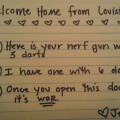 elcome Home from Louisi
♡ ♡ ♡ ♡ ♡ ♡ ♡ ♡ ♡ ♡
1) Here is your nerf gun w
3 darts
2) I have one with 6 da
3) Once you open this do
it's WAR
♡ Je